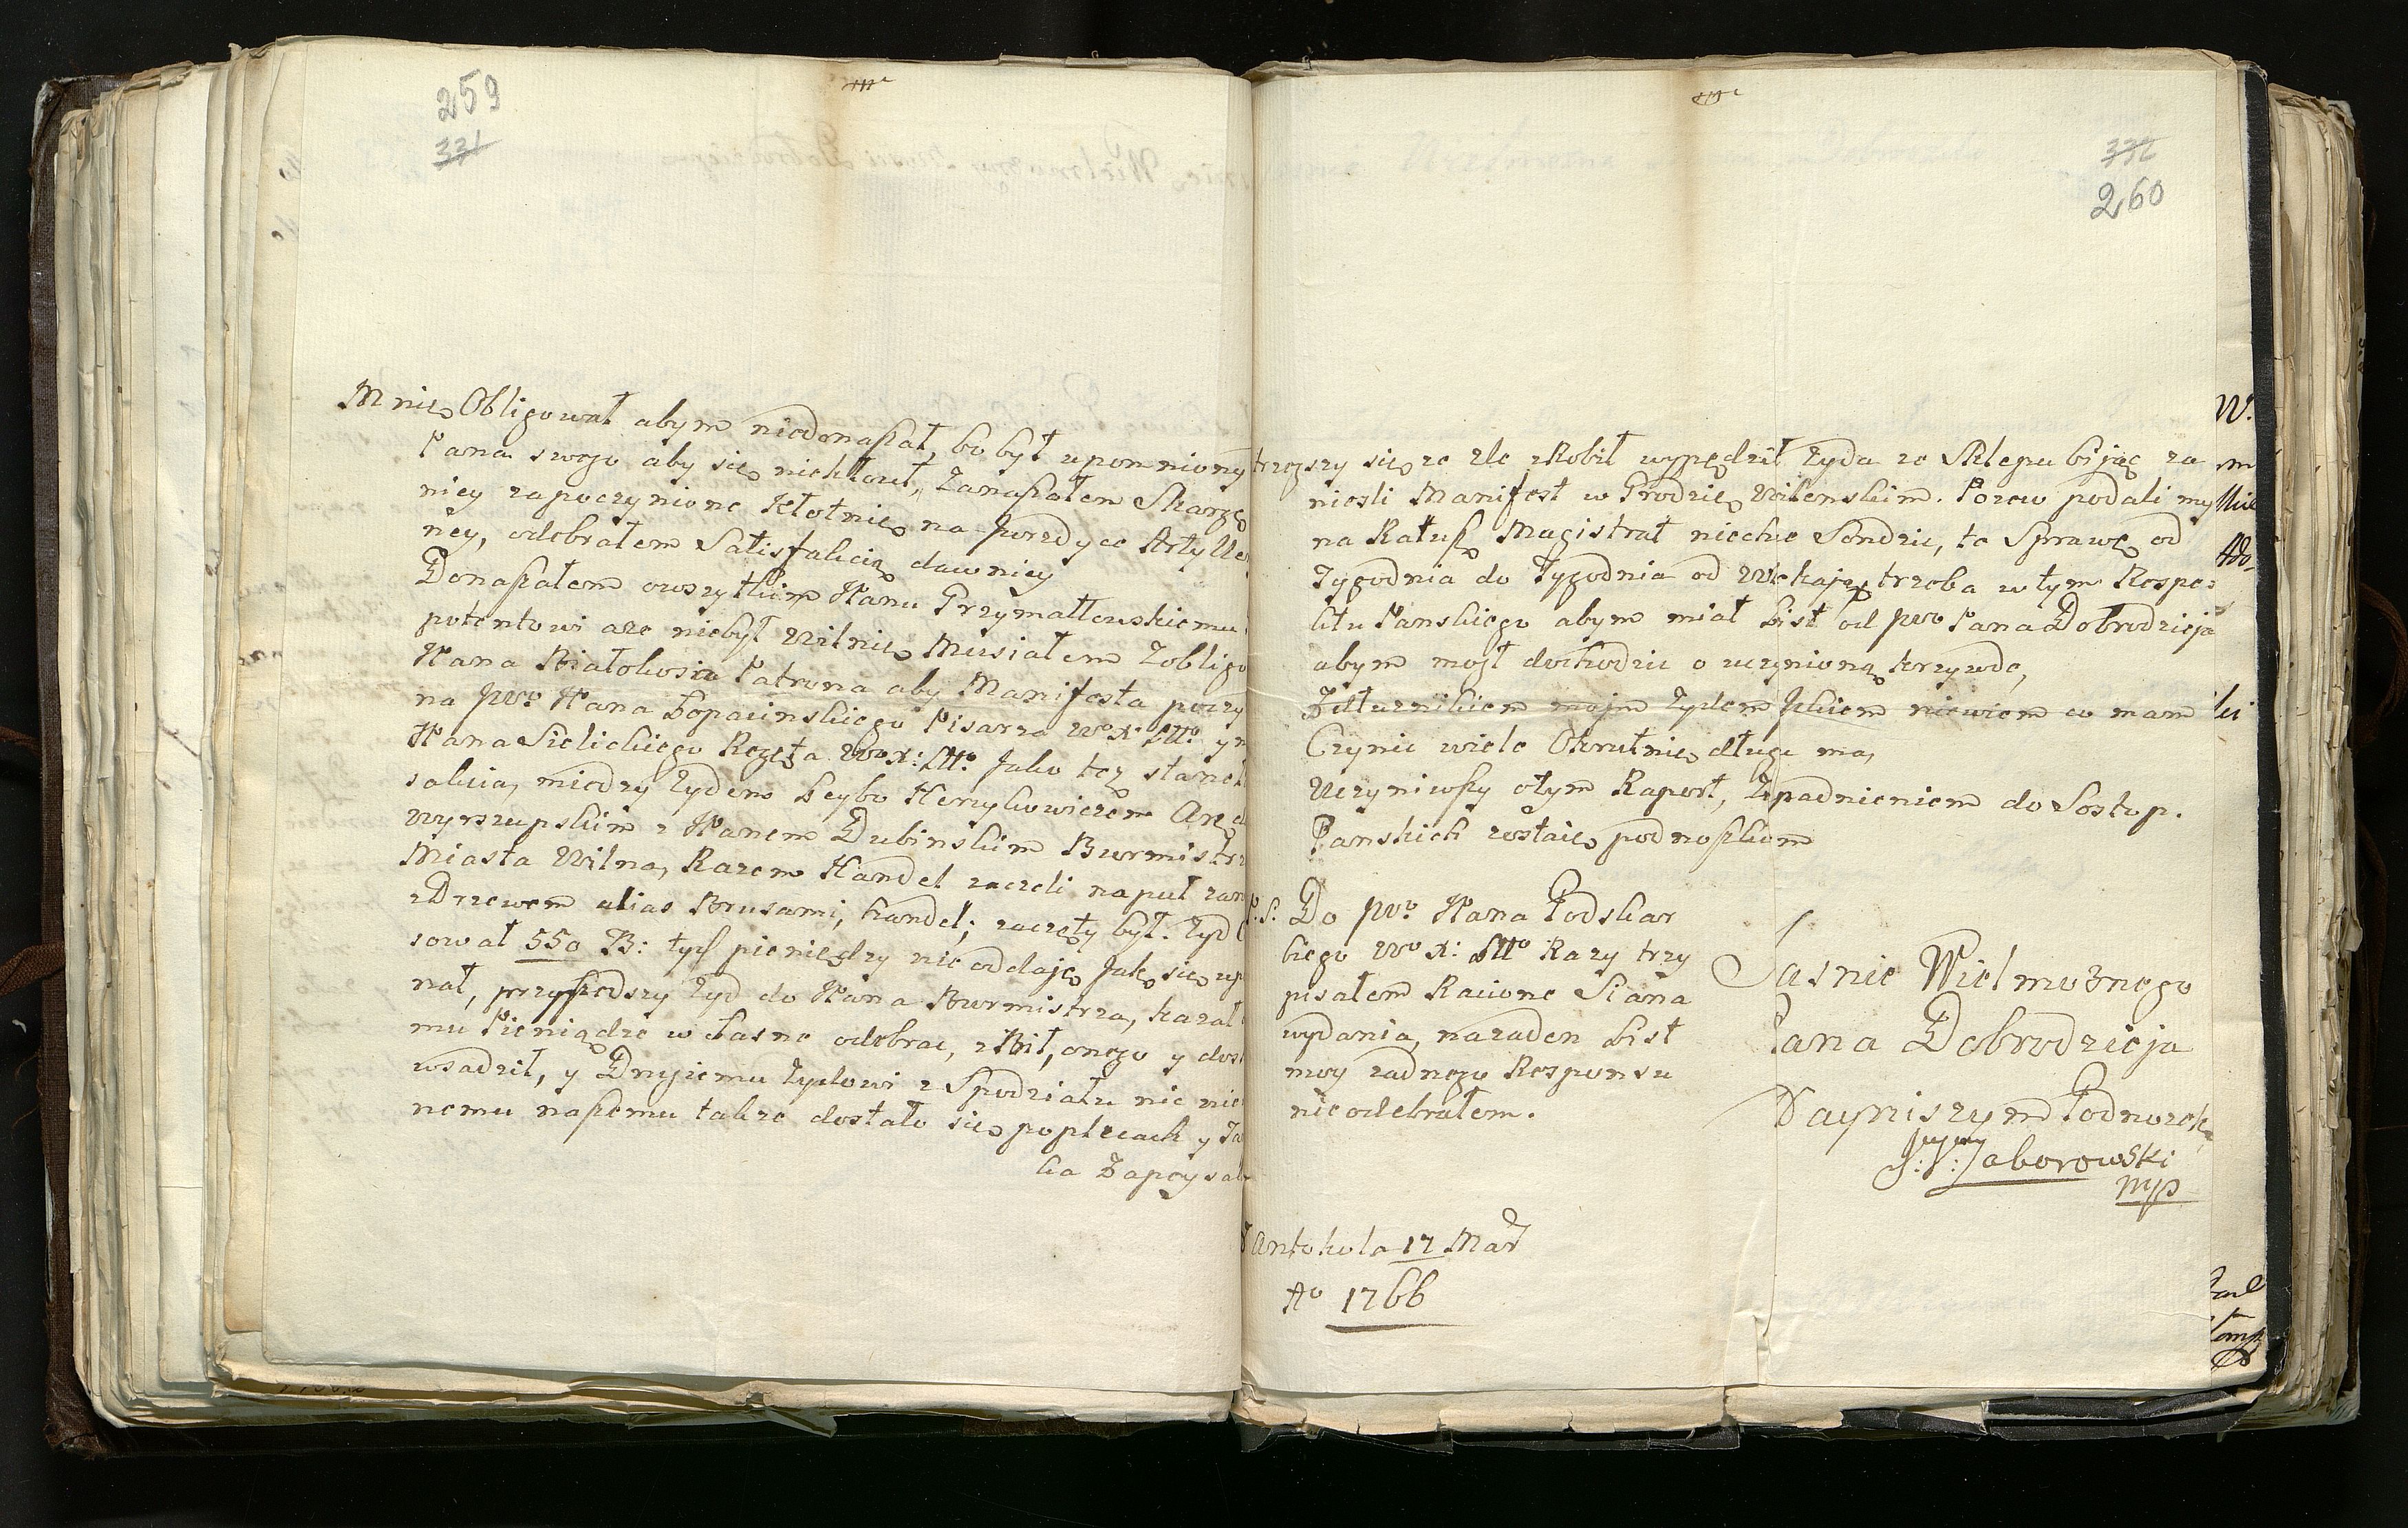 259
331
Mnie Obligował abym niedonaszał, bo był upomniony
Pana swego aby się niekłoał, Zanaszałem Skargę
niey zapoczynione Kłotnie na Jurzdyce Artylle
ney, odebrałem Satisfakcią dawniey
Donaszałem owszytkim Panu Przymałłowskiemu
potentowi aże niebył Wilnie Musiałem Zobligo
Pana Białokosia Patrona aby Manifesta poczy
na JWo Pana Łopacinskiego Pisarza Wo X: Litto y
Pana Sielickiego Regęta Wo X: Litto Jako też staneł
sakcia, miedzy Żydem Leybo Hercykowiczem Aręd
Wyrszupskim z Panem Dubinskim Burmistrz
Miasta Wilna, Razem Handel zaczeli napuł zam
z Drzewem alias Brusami, handel; zaczęty był. Żyd
sował 550 B: tysz pieniedzy nie oddaję Jak się up
nał, przyszedszy Żyd do Pana Burmistrza, kazał
mu Pieniądze w Łasne odebrac, zBił, onego y dos
wsadził, y Drugiemu Żydowi z Spodziału nic nie
nemu naszemu także dostało się poplecach y Ja
ka Zapcysal
332
260
trzegszy się ze zle zRobił wypędził Żyda ze Sklepu bijąc za
niesli Manifest w Grodzie Wilenskim. Pozew podali my
na Ratusz Magistrat niechce Sondzic, te Sprawę od
Tygodnia do Tygodnia od Wlekają trzeba wtym Respe:
ktu Panskiego abym miał List od JWo Pana Dobrodzieja
abym mogł dochodzic o uczynioną krzywdę,
Czynic wiele Okrutnie długu ma,
Uczyniwszy otym Raport, Zpadnieniem do Sostop.
Panskich zostaię podnoszkem
P.S. Do JWo Pana Podskar
biego Wo X: Litto Razy trzy
pisałem Racione Siana
wydania, nażaden List
moy żadnego Responsu
nieodebrałem.
Jasnie Wielmożnego
Pana Dobrodzieja
Nayniszym Podnoszk
Zaborowski
mp
Z Antokola 17 Mar
Ao 1766